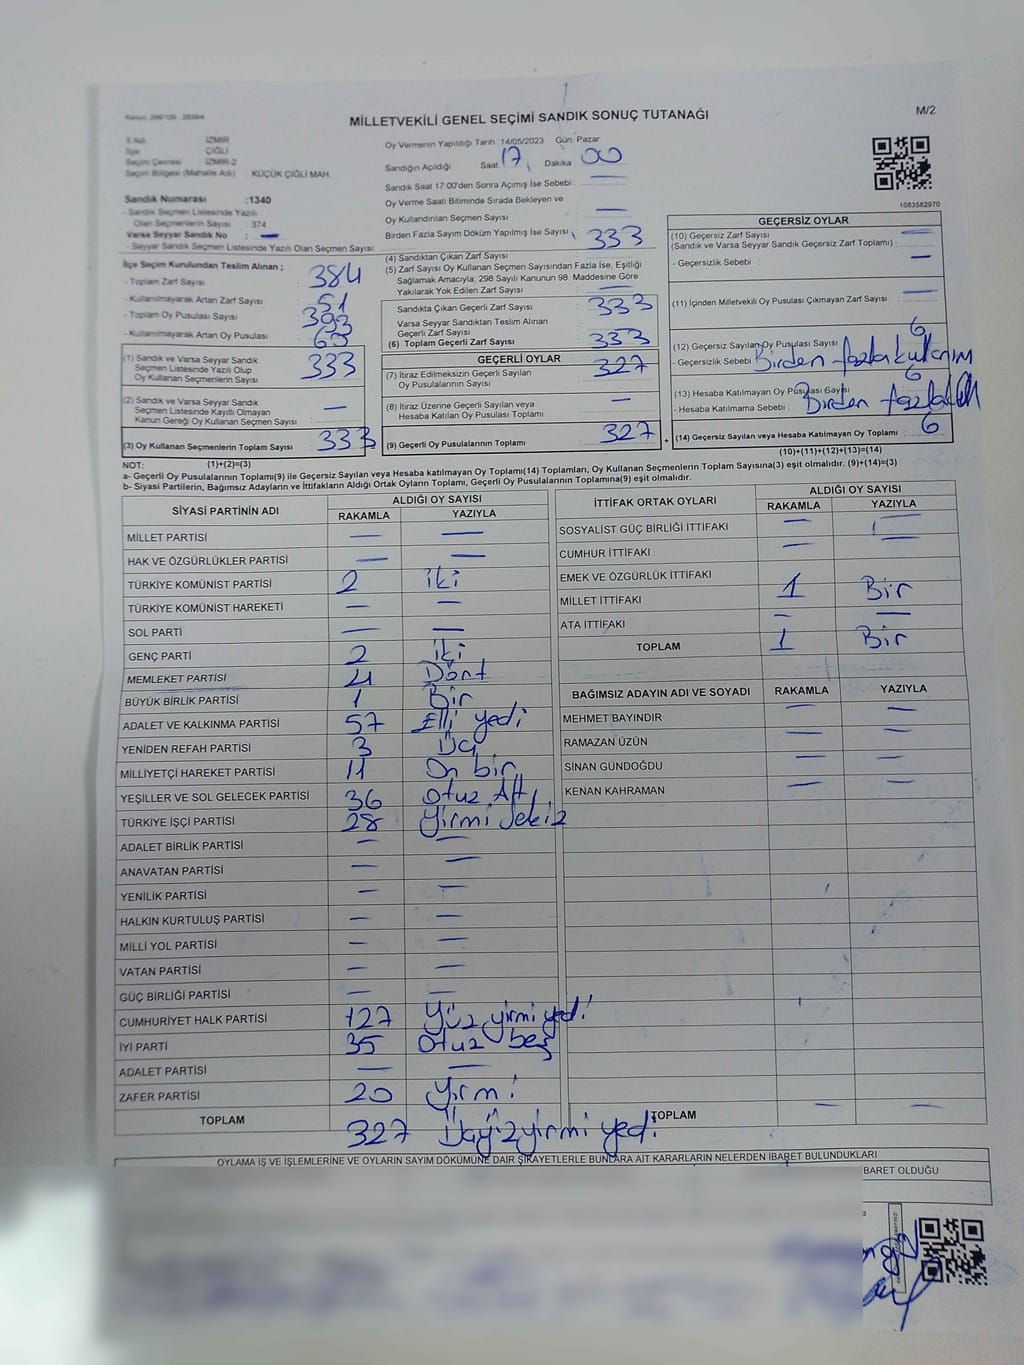 MİLLETVEKİLİ GENEL SEÇİMİ SANDIK SONUÇ TUTANAĞI
M/2
İli Adı : İZMİR
İlçe : ÇİĞLİ
Seçim Çevresi : İZMİR-2
Seçim Bölgesi (Mahalle Adı) : KÜÇÜK ÇİĞLİ MAH.
Sandık Numarası : 1340
- Sandık Seçmen Listesinde Yazılı
Olan Seçmenlerin Sayısı : 374
Varsa Seyyar Sandık No : —
- Seyyar Sandık Seçmen Listesinde Yazılı Olan Seçmen Sayısı:
Oy Vermenin Yapıldığı Tarih : 14/05/2023 Gün : Pazar
Sandığın Açıldığı Saat : 17 Dakika : 00
Sandık Saat 17:00'den Sonra Açımış İse Sebebi : —
Oy Verme Saati Bitiminde Sırada Bekleyen ve
Oy Kullandırılan Seçmen Sayısı —
Birden Fazla Sayım Döküm Yapılmış İse Sayısı
1083582970
İlçe Seçim Kurulundan Teslim Alınan ;
- Toplam Zarf Sayısı : 384
- Kullanılmayarak Artan Zarf Sayısı : 51
- Toplam Oy Pusulası Sayısı : 393
- Kullanılmayarak Artan Oy Pusulası :
(1) Sandık ve Varsa Seyyar Sandık
Seçmen Listesinde Yazılı Olup
Oy Kullanan Seçmenlerin Sayısı : 333
(2) Sandık ve Varsa Seyyar Sandık
Seçmen Listesinde Kayıtlı Olmayan
Kanun Gereği Oy Kullanan Seçmen Sayısı : —
(3) Oy Kullanan Seçmenlerin Toplam Sayısı : 333
(4) Sandıktan Çıkan Zarf Sayısı : 333
(5) Zarf Sayısı Oy Kullanan Seçmen Sayısından Fazla İse, Eşitliği
Sağlamak Amacıyla; 298 Sayılı Kanunun 98. Maddesine Göre
Yakılarak Yok Edilen Zarf Sayısı : —
Sandıkta Çıkan Geçerli Zarf Sayısı : 333
Varsa Seyyar Sandıktan Teslim Alınan
Geçerli Zarf Sayısı : —
(6) Toplam Geçerli Zarf Sayısı : 333
GEÇERLİ OYLAR
(7) İtiraz Edilmeksizin Geçerli Sayılan
Oy Pusulalarının Sayısı : 327
(8) İtiraz Üzerine Geçerli Sayılan veya
Hesaba Katılan Oy Pusulası Toplamı : —
(9) Geçerli Oy Pusulalarının Toplamı : 327 +
GEÇERSİZ OYLAR
(10) Geçersiz Zarf Sayısı : —
(Sandık ve Varsa Seyyar Sandık Geçersiz Zarf Toplamı) :
- Geçersizlik Sebebi : —
(11) İçinden Milletvekili Oy Pusulası Çıkmayan Zarf Sayısı : —
(12) Geçersiz Sayılan Oy Pusulası Sayısı : 6
- Geçersizlik Sebebi : Birden fazla kullanım
(13) Hesaba Katılmayan Oy Pusulası Sayısı : 6
- Hesaba Katılmama Sebebi : Birden fazla
(14) Geçersiz Sayılan veya Hesaba Katılmayan Oy Toplamı : 6
(10)+(11)+(12)+(13)=(14)
NOT: (1)+(2)=(3)
a- Geçerli Oy Pusulalarının Toplamı(9) ile Geçersiz Sayılan veya Hesaba katılmayan Oy Toplamı(14) Toplamları, Oy Kullanan Seçmenlerin Toplam Sayısına(3) eşit olmalıdır. (9)+(14)=(3)
b- Siyasi Partilerin, Bağımsız Adayların ve İttifakların Aldığı Ortak Oyların Toplamı, Geçerli Oy Pusulalarının Toplamına(9) eşit olmalıdır.
SİYASİ PARTİNİN ADI ALDIĞI OY SAYISI
RAKAMLA YAZIYLA
MİLLET PARTİSİ — —
HAK VE ÖZGÜRLÜKLER PARTİSİ — —
TÜRKİYE KOMÜNİST PARTİSİ 2 iki
TÜRKİYE KOMÜNİST HAREKETİ — —
SOL PARTİ — —
GENÇ PARTİ 2 iki
MEMLEKET PARTİSİ 4 Dört
BÜYÜK BİRLİK PARTİSİ 1 Bir
ADALET VE KALKINMA PARTİSİ 57 Elli yedi
YENİDEN REFAH PARTİSİ 3 Üç
MİLLİYETÇİ HAREKET PARTİSİ 11 On bir
YEŞİLLER VE SOL GELECEK PARTİSİ 36 otuz Altı
TÜRKİYE İŞÇİ PARTİSİ 28 yirmi sekiz
ADALET BİRLİK PARTİSİ — —
ANAVATAN PARTİSİ — —
YENİLİK PARTİSİ — —
HALKIN KURTULUŞ PARTİSİ — —
MİLLİ YOL PARTİSİ — —
VATAN PARTİSİ — —
GÜÇ BİRLİĞİ PARTİSİ — —
CUMHURİYET HALK PARTİSİ 127 Yüz yirmi yedi
İYİ PARTİ 35 Otuz beş
ADALET PARTİSİ — —
ZAFER PARTİSİ 20 Yirmi
TOPLAM 327 Üçyüzyirmi yedi
İTTİFAK ORTAK OYLARI ALDIĞI OY SAYISI
RAKAMLA YAZIYLA
SOSYALİST GÜÇ BİRLİĞİ İTTİFAKI — —
CUMHUR İTTİFAKI — —
EMEK VE ÖZGÜRLÜK İTTİFAKI
MİLLET İTTİFAKI 1 Bir
ATA İTTİFAKI — —
TOPLAM 1 Bir
BAĞIMSIZ ADAYIN ADI VE SOYADI RAKAMLA YAZIYLA
MEHMET BAYINDIR — —
RAMAZAN ÜZÜN — —
SİNAN GÜNDOĞDU — —
KENAN KAHRAMAN — —
TOPLAM — —
OYLAMA İŞ VE İŞLEMLERİNE VE OYLARIN SAYIM DÖKÜMÜNE DAİR ŞİKAYETLERLE BUNLARA AİT KARARLARIN NELERDEN İBARET BULUNDUKLARI
BARET OLDUĞU